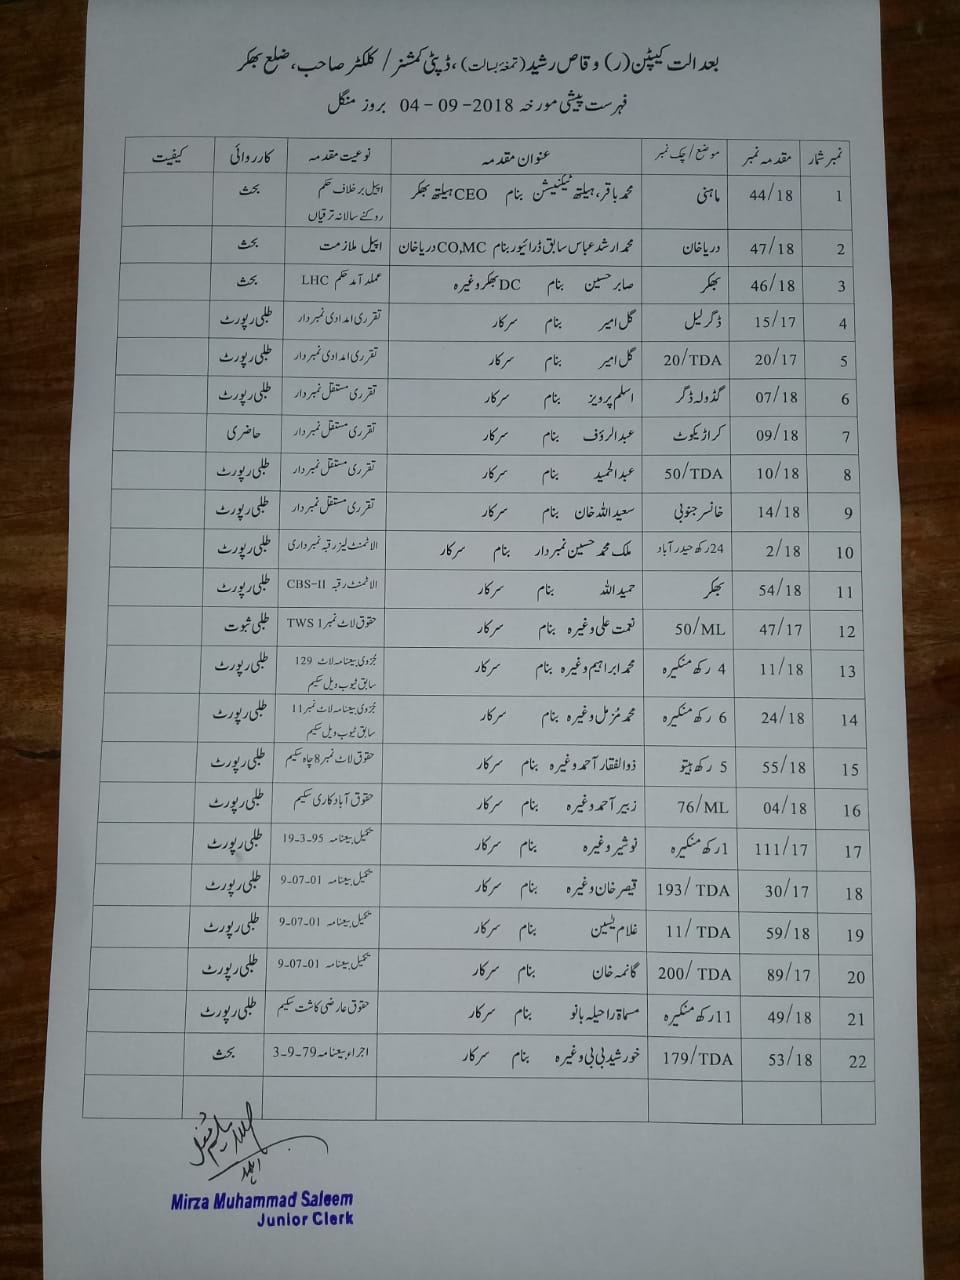 بعدالت کیپٹن (ر) وقاص رشید (تمغۂ بسالت)، ڈپٹی کمشنر / کلکٹر صاحب، ضلع بھکر
فہرست پیشی مورخہ 04-09-2018 بروز منگل
نمبر شمار مقدمہ نمبر موضع / چک نمبر عنوان مقدمہ نوعیت مقدمہ کارروائی کیفیت
1 44/18 ماہنی محمد باقر، ہیلتھ ٹیکنیشن بنام CEO ہیلتھ بھکر اپیل برخلاف حکم بحث
روکنے سالانہ ترقیاں
2 47/18 دریاخان محمد ارشد عباس سابق ڈرائیور بنام CO,MC دریاخان اپیل ملازمت بحث
3 46/18 بھکر صابر حسین بنام DC بھکر وغیرہ عملدآمد حکم LHC بحث
4 15/17 ڈگر لیل گل امیر بنام سرکار تقرری امدادی نمبردار طلبی رپورٹ
5 20/17 20/TDA گل امیر بنام سرکار تقرری امدادی نمبردار طلبی رپورٹ
6 07/18 گڈولہ ڈگر اسلم پرویز بنام سرکار تقرری مستقل نمبردار طلبی رپورٹ
7 09/18 کراڑیکوٹ عبدالرؤف بنام سرکار تقرری مستقل نمبردار حاضری
8 10/18 50/TDA عبدالحمید بنام سرکار تقرری مستقل نمبردار طلبی رپورٹ
9 14/18 خانسر جنوبی سعید اللہ خان بنام سرکار تقرری مستقل نمبردار طلبی رپورٹ
10 2/18 24 رکھ حیدرآباد ملک محمد حسین نمبردار بنام سرکار الاٹمنٹ لیز رقبہ نمبرداری طلبی رپورٹ
11 54/18 بھکر حمید اللہ بنام سرکار الاٹمنٹ رقبہ CBS-II طلبی رپورٹ
12 47/17 50/ML نعمت علی وغیرہ بنام سرکار حقوق لاٹ نمبر 1 TWS طلبی ثبوت
13 11/18 4 رکھ منکیرہ محمد ابراہیم وغیرہ بنام سرکار جزوی بیعنامہ لاٹ 129 طلبی رپورٹ
سابق ٹیوب ویل سکیم
14 24/18 6 رکھ منکیرہ محمد مزمل وغیرہ بنام سرکار جزوی بیعنامہ لاٹ نمبر 11 طلبی رپورٹ
سابق ٹیوب ویل سکیم
15 55/18 5 رکھ ہیتو ذوالفقار آحمد وغیرہ بنام سرکار حقوق لاٹ نمبر 8 چاہ سکیم طلبی رپورٹ
16 04/18 76/ML زبیر آحمد وغیرہ بنام سرکار حقوق آبادکاری سکیم طلبی رپورٹ
17 111/17 1 رکھ منکیرہ نوشیر وغیرہ بنام سرکار تکمیل بیعنامہ 19-3-95 طلبی رپورٹ
18 30/17 193/ TDA قیصر خان وغیرہ بنام سرکار تکمیل بیعنامہ 9-07-01 طلبی رپورٹ
19 59/18 11/ TDA غلام یٰسین بنام سرکار تکمیل بیعنامہ 9-07-01 طلبی رپورٹ
20 89/17 200/ TDA خان بنام سرکار تکمیل بیعنامہ 9-07-01 طلبی رپورٹ
21 49/18 11 رکھ منکیرہ مسماۃ راحیلہ بانو بنام سرکار حقوق عارضی کاشت سکیم طلبی رپورٹ
22 53/18 179/TDA خورشید بی بی وغیرہ بنام سرکار اجراء بیعنامہ 3-9-79 بحث
Mirza Muhammad Saleem
Junior Clerk